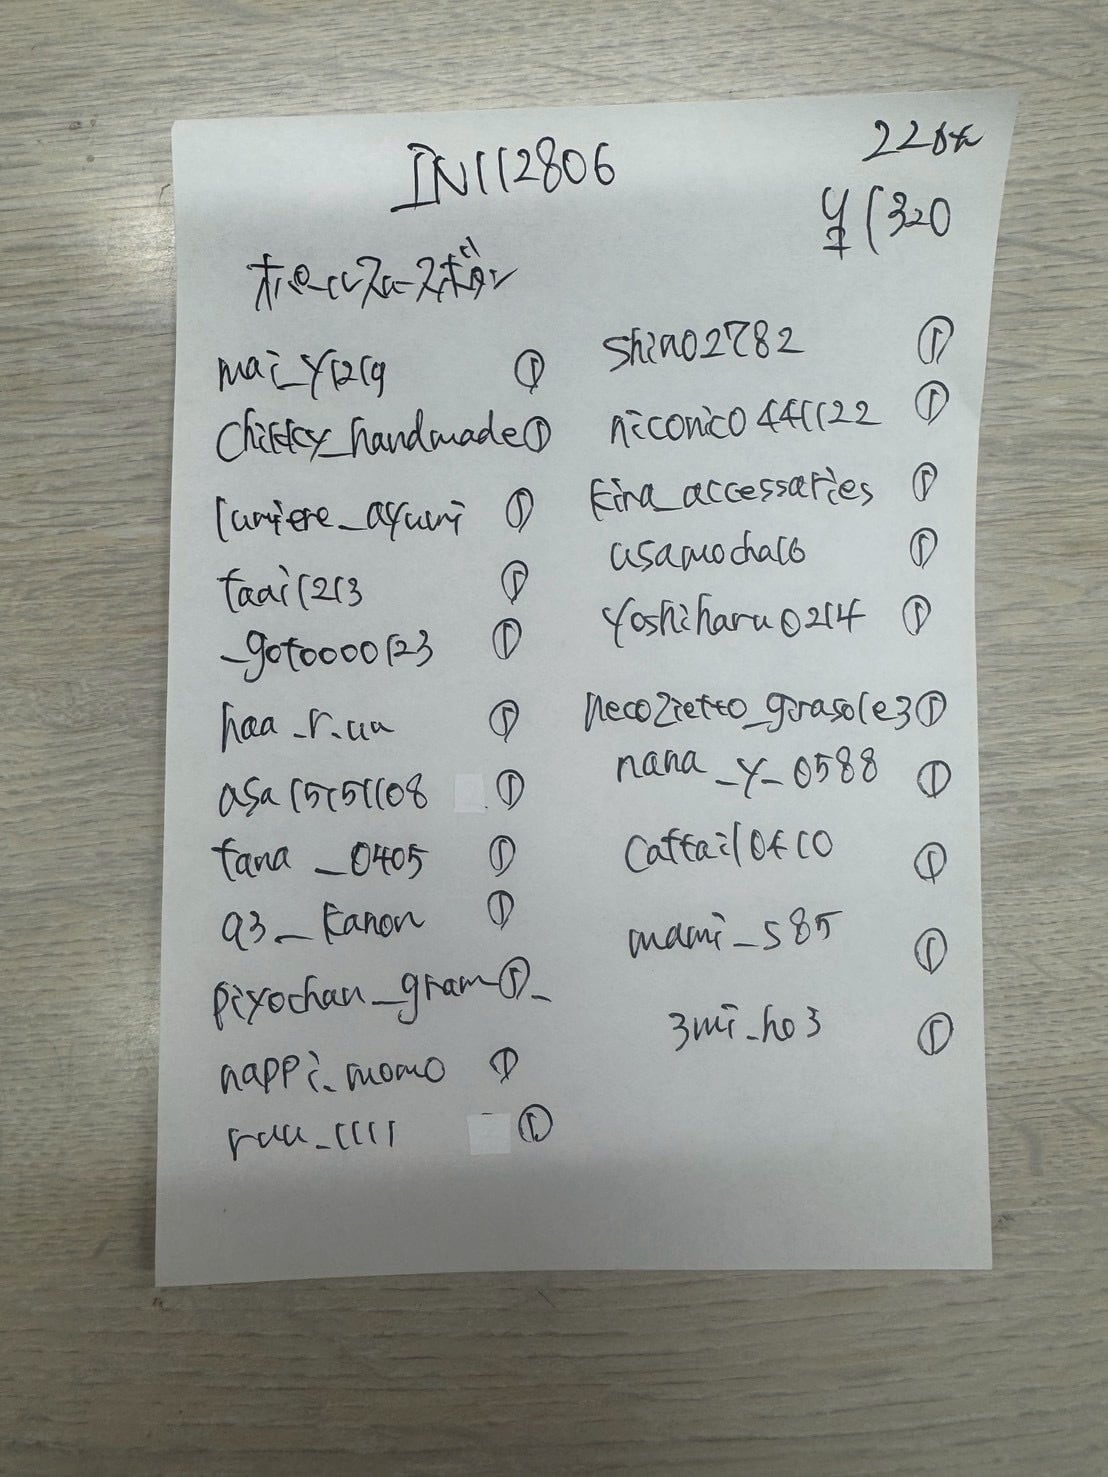 IN112806
22өк
¥1320
mai_y1219 ①
chikky_handmade ①
lumiere_ayumi ①
taai1213 ①
_goto0000123 ①
haa_r.uu ①
asa15151108 ①
tana_0405 ①
a3_kanon ①
piyochan_gram_ ①
nappi_momo ①
ruu_1111 ①
shino2782 ①
niconico441122 ①
kira_accessaries ①
asamocha16 ①
yoshiharu0214 ①
necozietto_girasole3 ①
nana_y_0588 ①
cattail0410 ①
mami_s85 ①
3mi_ho3 ①